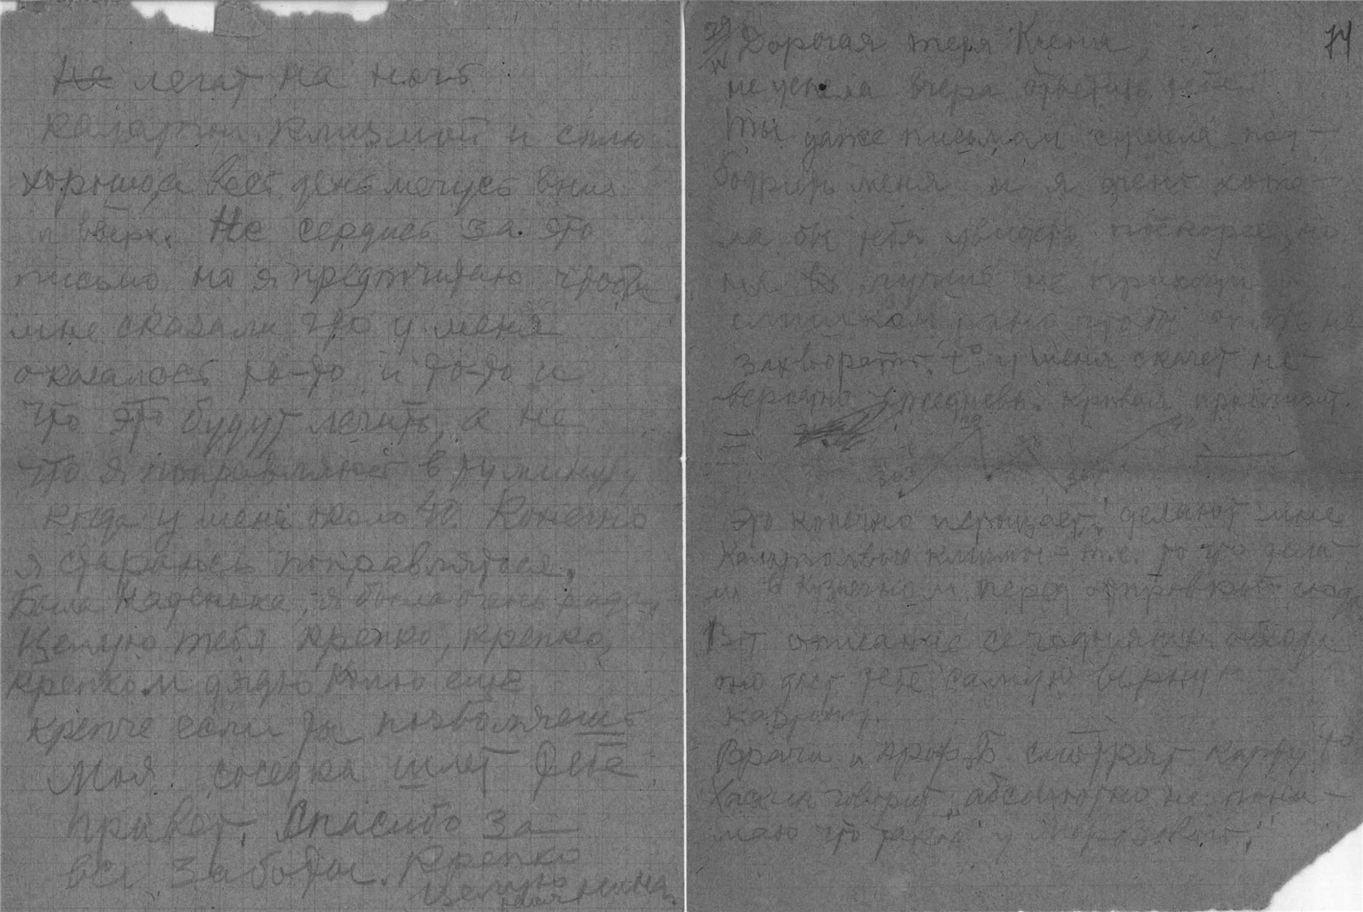 Не легат на ночь
клизмой и сплю
хорошо, а весь день мечусь вниз
и вверх. Не сердись за это
письмо но я предпочитаю чтобы
мне сказали что у меня
оказалось то-то и то-то и
что это будут лечить, а не
что я поправляюсь в ту минуту
когда у меня около 40. Конечно
я стараюсь поправляться.
Была Наденька, я была очень рада.
Целую тебя крепко, крепко,
крепко и дядю Колю ещё
крепче если ты позволяешь
Моя соседка шлёт тебе
привет. Спасибо за
все заботы. Крепко
целую твоя Нина
74
29/IV Дорогая тетя Ксения,
не успела вчера ответить тебе.
Ты даже письмом сумела под-
бодрить меня и я очень хоте-
ла бы тебя увидеть поскорее, но
лучше не приходи
слишком рано чтобы опять не
захворать. t° у меня скачет не-
вероятно ежедневн. кривая приблизит.
=
39 40
38
36
Это конечно делают мне
клизмы - т.е. то что дела-
ли в Кузнечном перед отправкой сюда
Вот описание сегодняшн. обхода
оно даст тебе самую верную
картину.
Врачи и проф. Б. смотрят карту
говорит „абсолютно не пони-
маю что такое у Морозовой“,